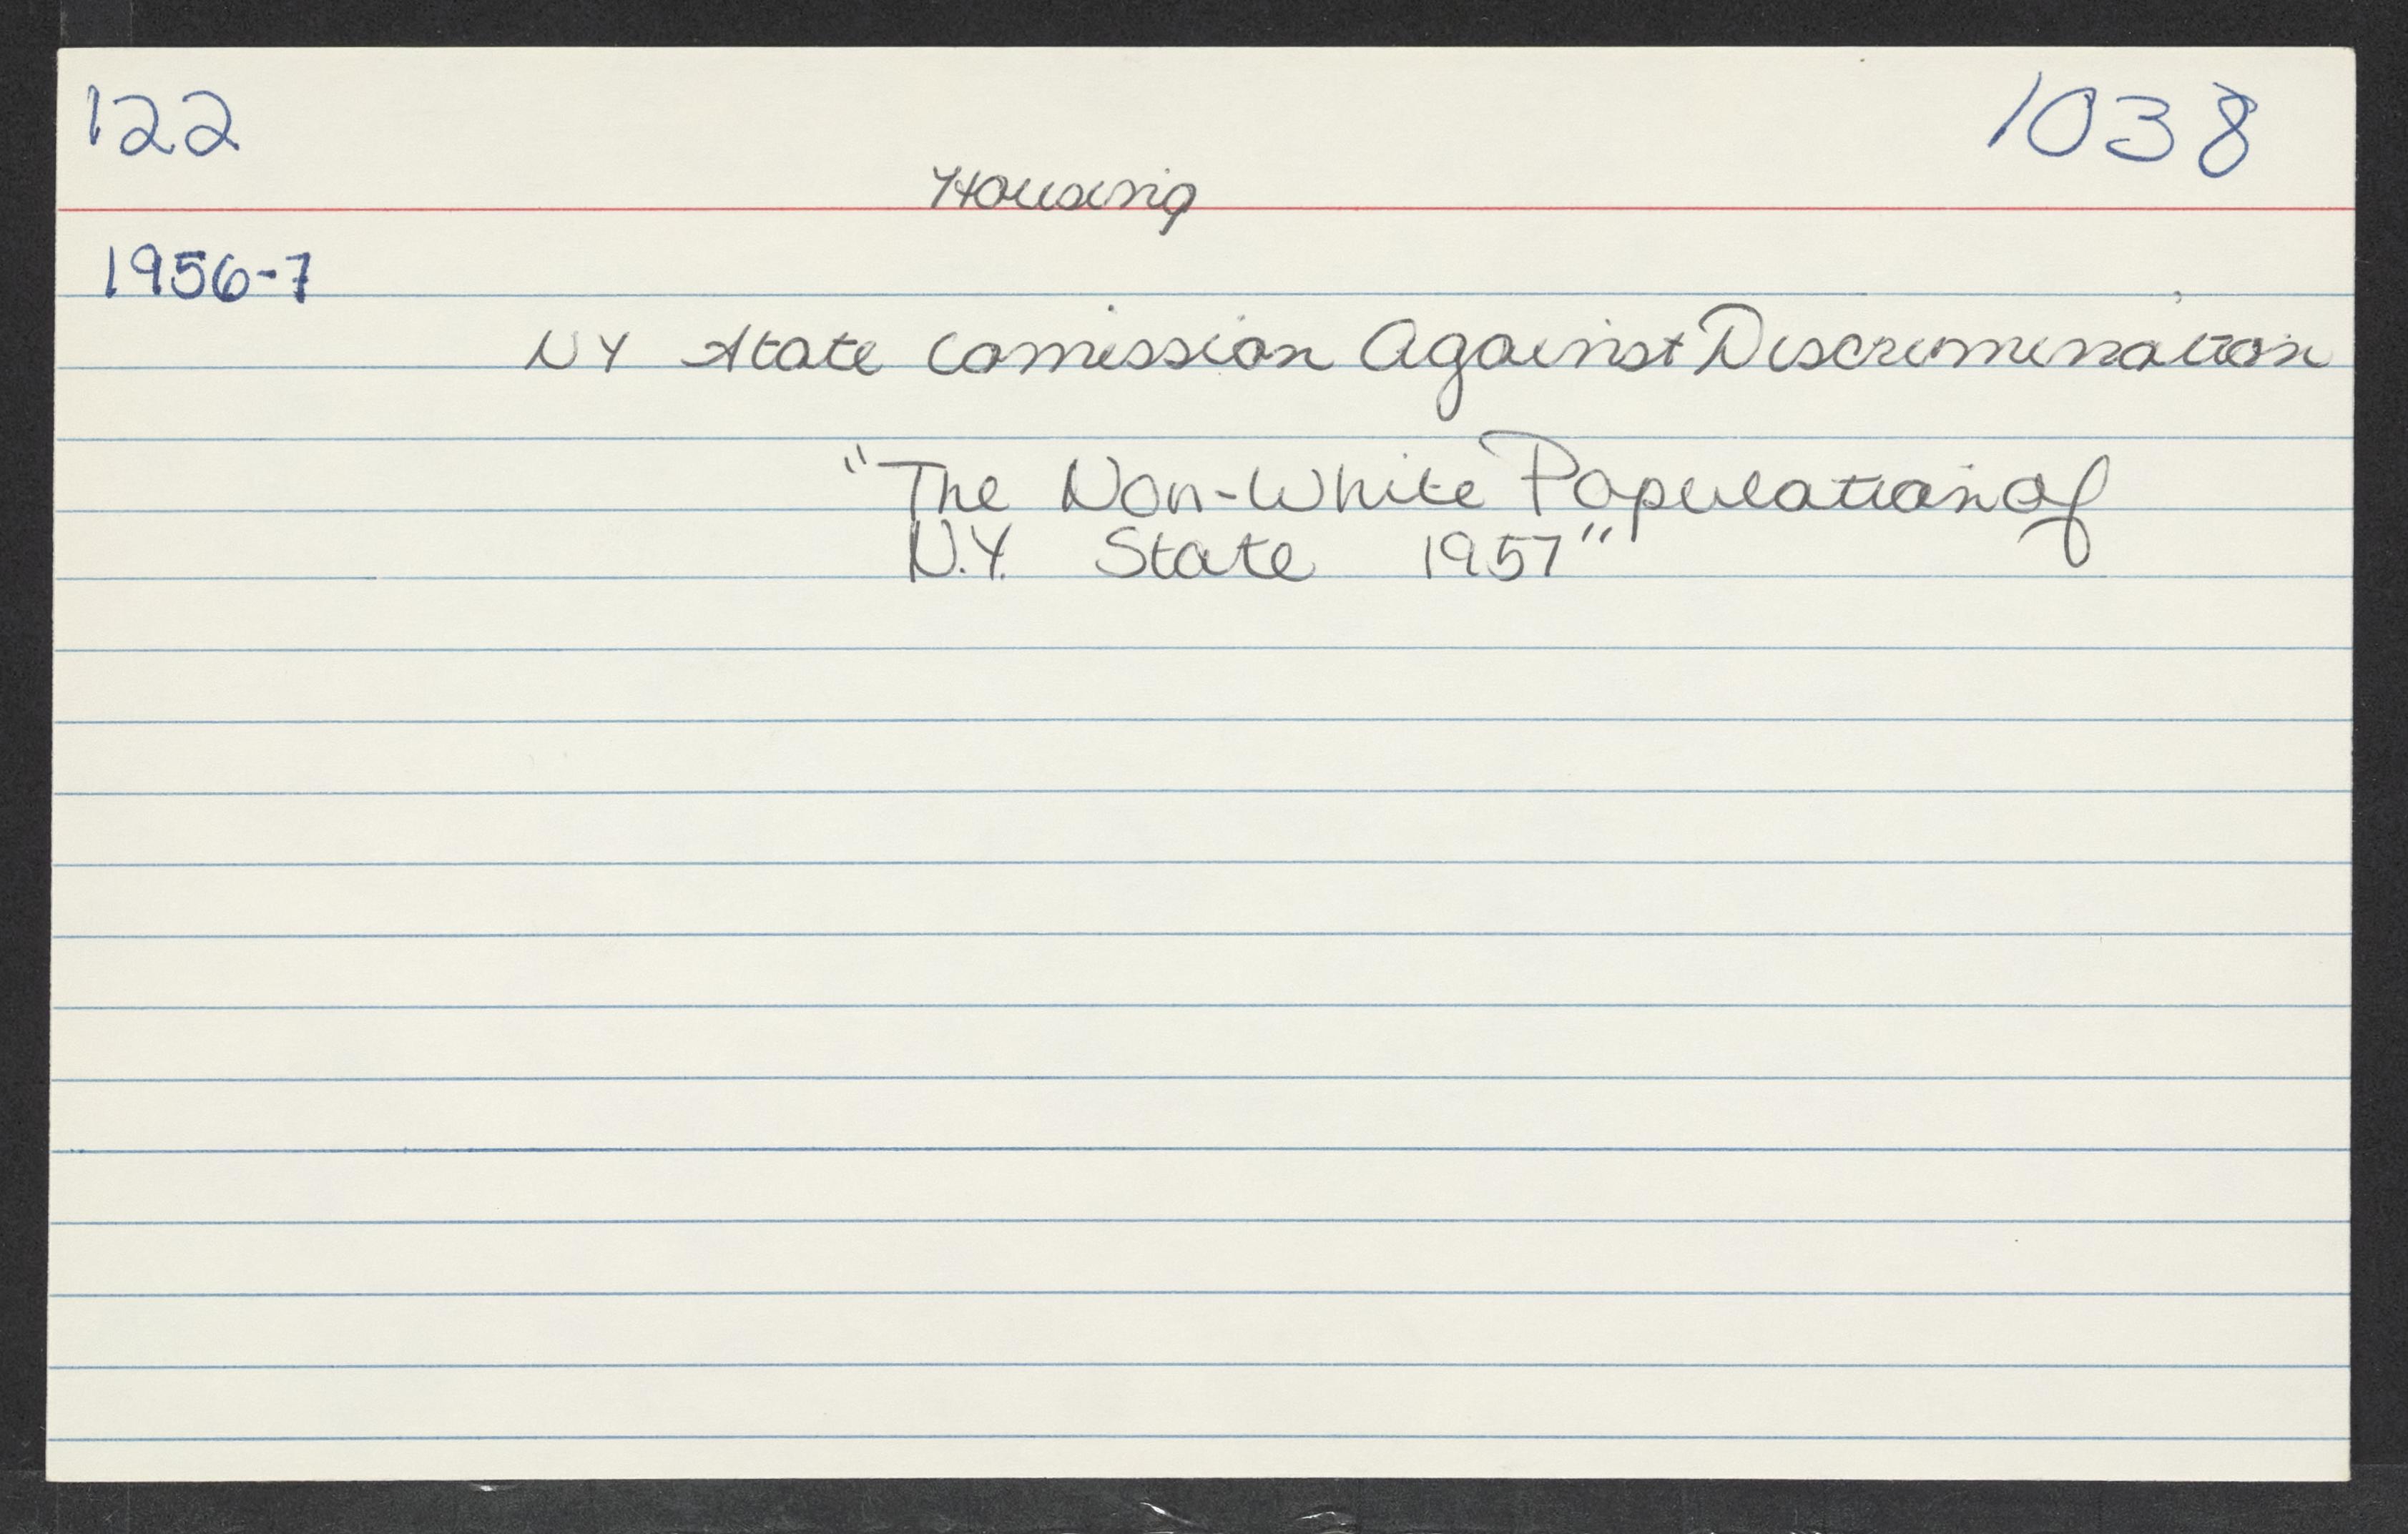 122 1038
Housing
1956-7
NY State Comission Against Discrimination
"The Non-White Population of
N.Y. State 1957"